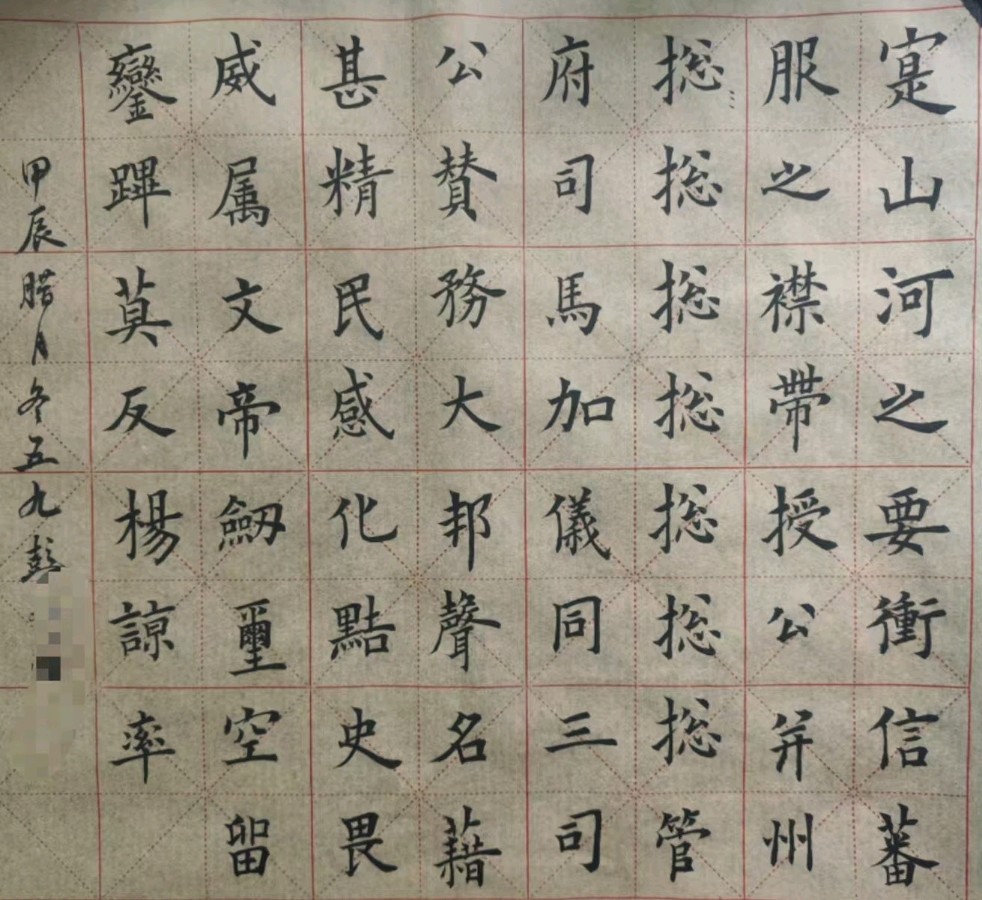 寔山河之要衝信蕃
服之襟帶授公并州
捴捴捴捴捴捴捴管
府司馬加儀同三司
公賛務大邦聲名藉
甚精民感化黠史畏
威属文帝劔璽空留
鑾蹕莫反楊諒率
甲辰腊月冬五九彭